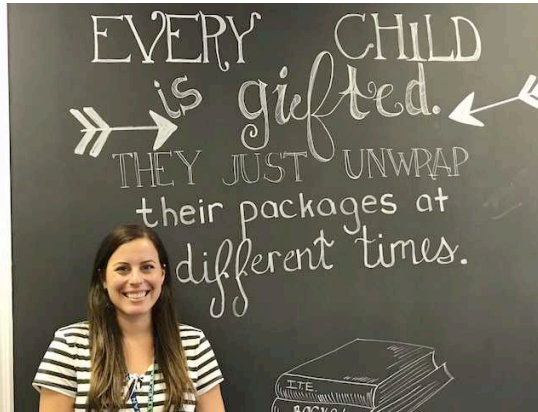 EVERY CHILD
is gifted.
THEY JUST UNWRAP
their packages at
different times.
I.T.E.